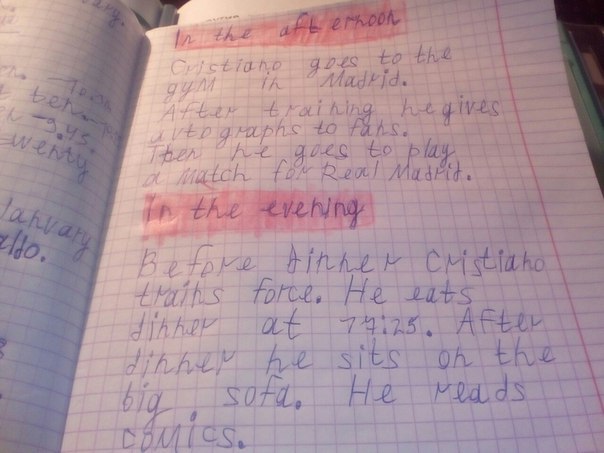 wenty
aldo.
In the afternoon
Cristiano goes to the
gym in Madrid.
After training he gives
avtographs to fans.
Then he goes to play
a match for Real Madrid.
In the evening
Before dinner Cristiano
trains force. He eats
dinner at 17:25. After
dinner he sits on the
big sofa. He reads
comics.